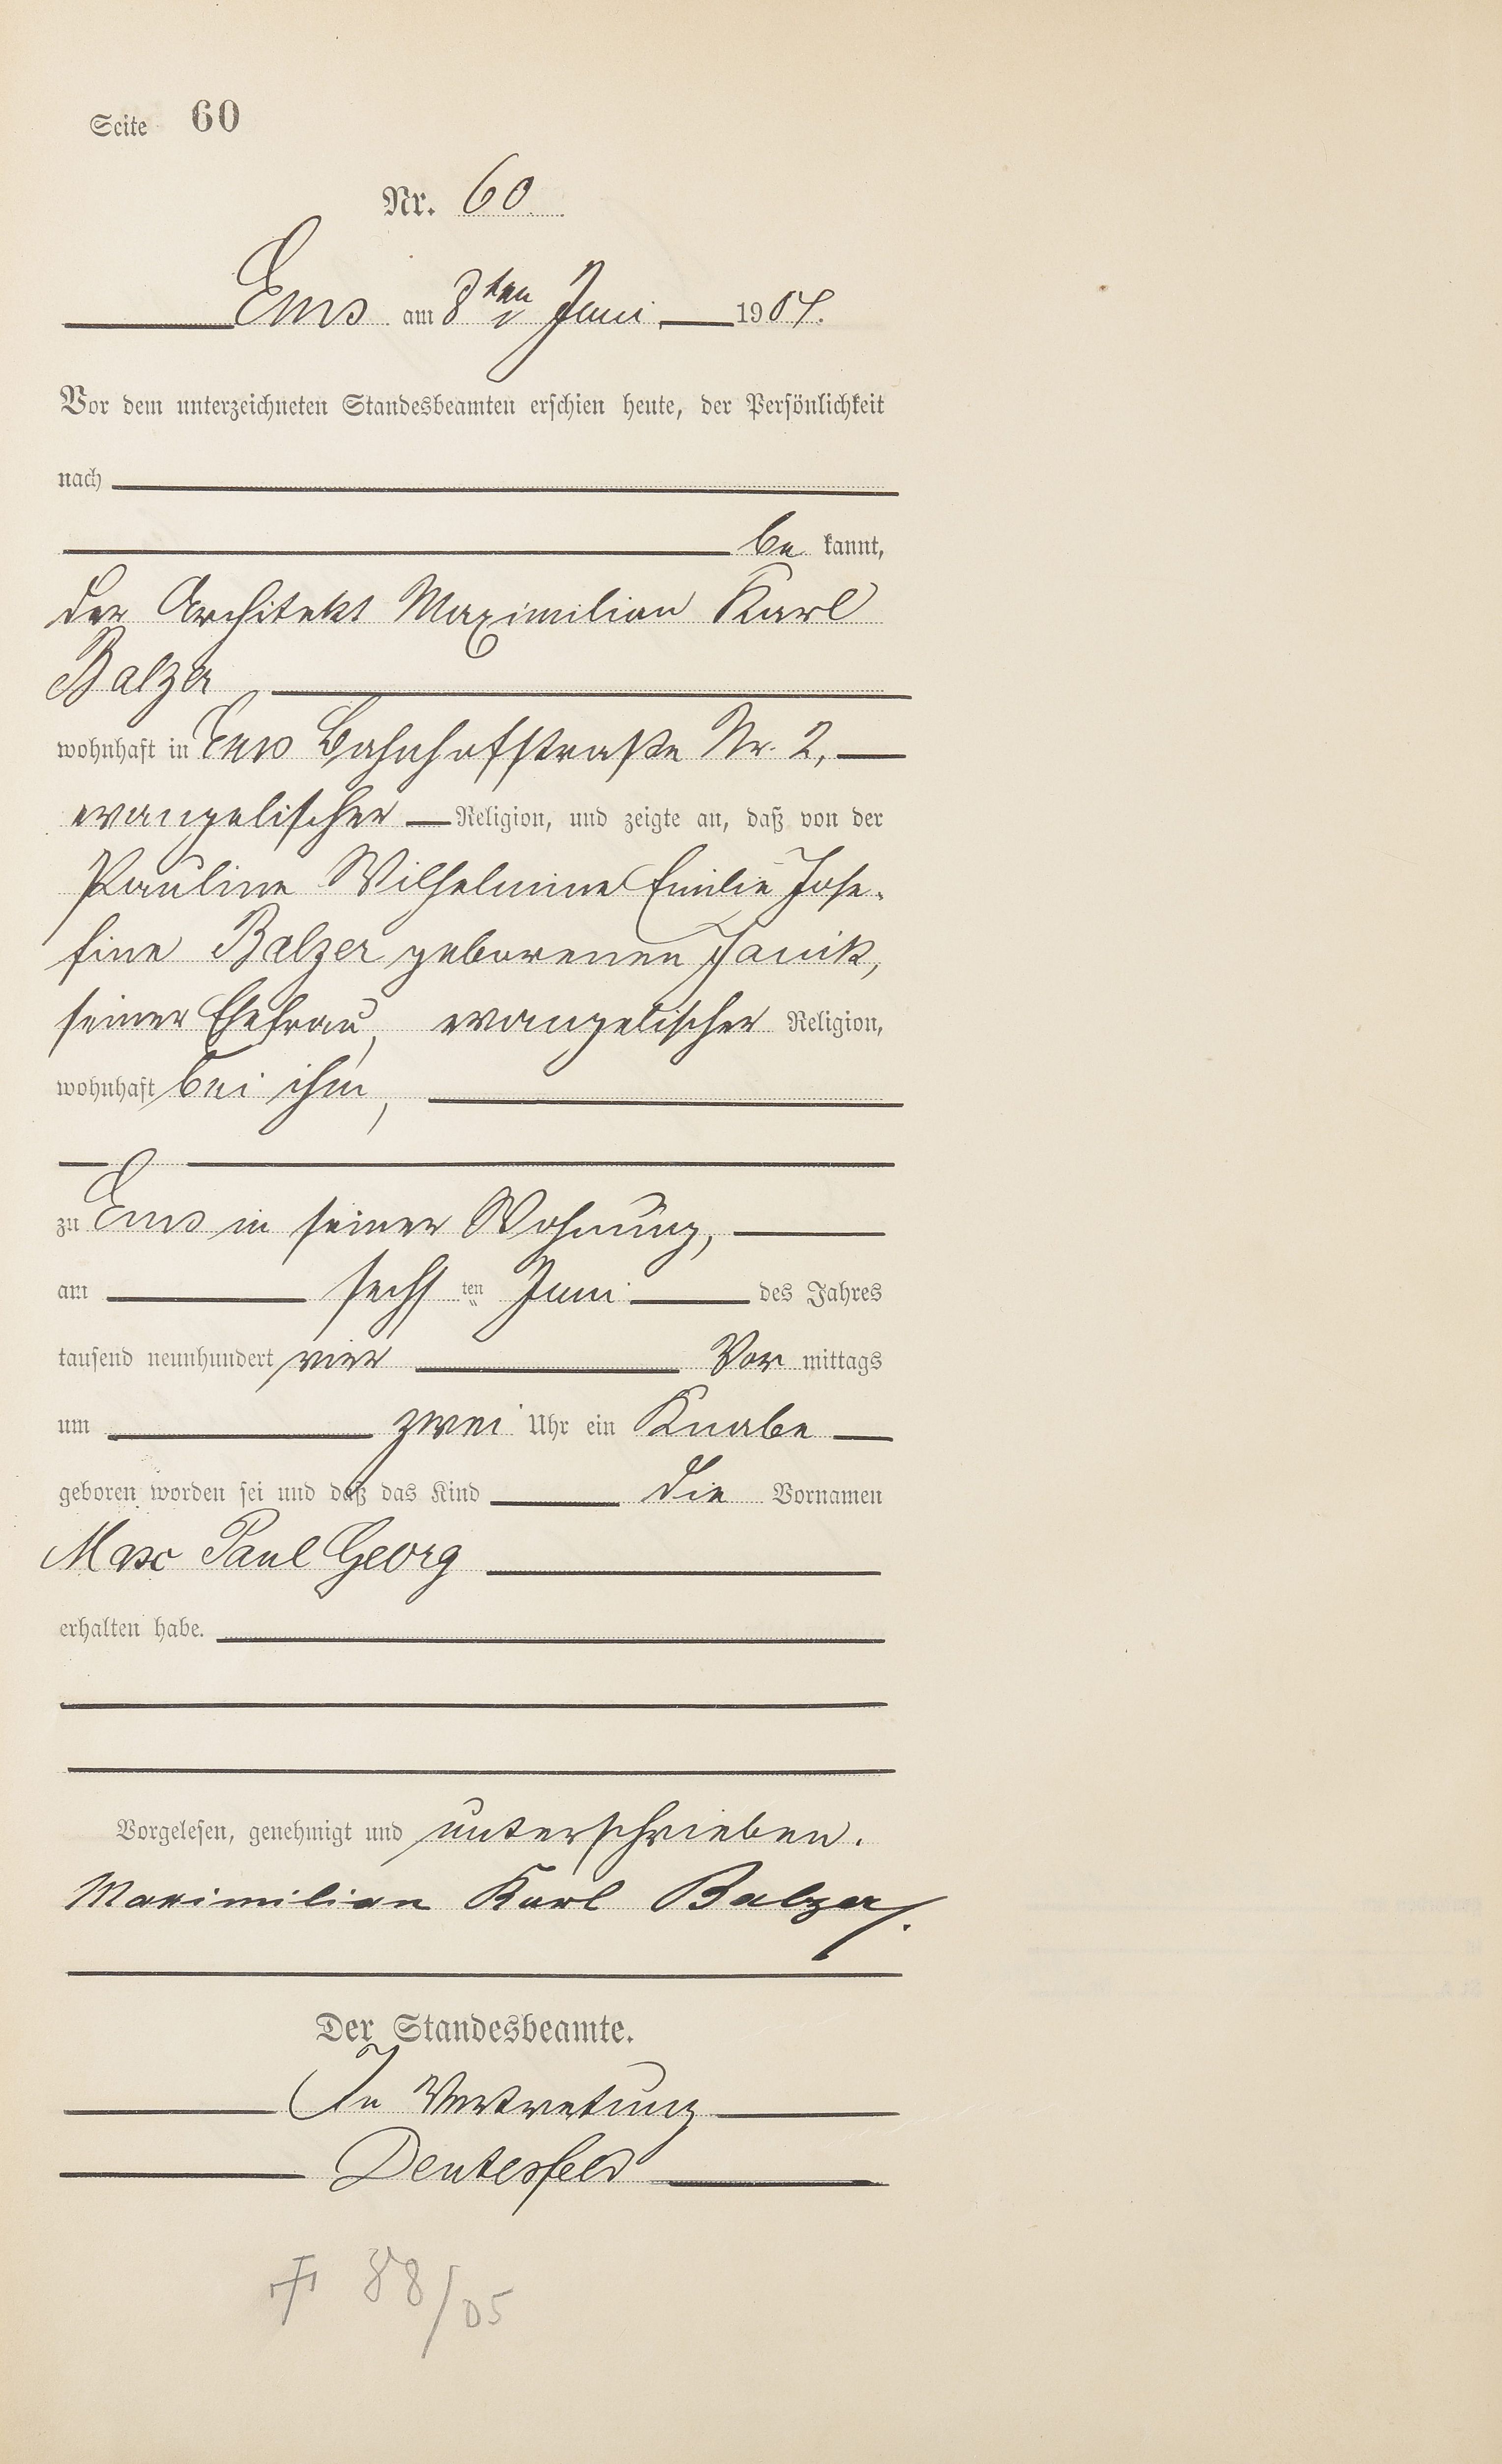 Seite 60
Nr. 60
Ems am 8ten Juni 1904.
Vor dem unterzeichneten Standesbeamten erschien heute, der Persönlichkeit
nach
be kannt,
der Architekt Maximilian Karl
Balzer
wohnhaft in Ems Bahnhofstraße Nr. 2,
evangelischer Religion, und zeigte an, daß von der
Pauline Wilhelmine Emilie Jose-
fine Balzer geborenen Janik,
seiner Ehefrau, evangelischer Religion,
wohnhaft bei ihm,
zu Ems in seiner Wohnung,
am sechs ten Juni des Jahres
tausend neunhundert vier Vor mittags
um zwei Uhr ein Knabe
geboren worden sei und daß das Kind die Vornamen
Max Paul Georg
erhalten habe.
Vorgelesen, genehmigt und unterschrieben.
Maximilian Karl Balzer.
Der Standesbeamte.
In Vertretung
Deutesfeld
† 88/05